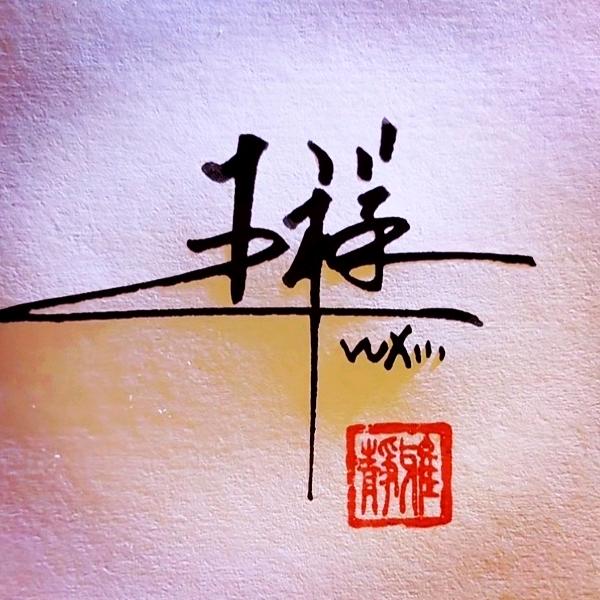 王祥
WX
雅静